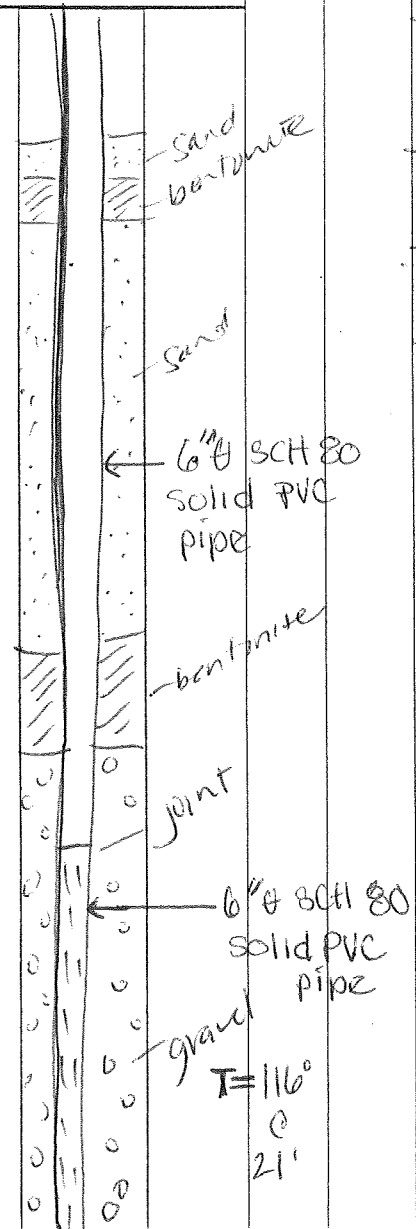 sand
bentonite
sand
6"ϴ SCH 80
solid PVC
pipe
bentonite
joint
6"ϴ SCH 80
solid PVC
pipe
gravel
T=116°
@
21'